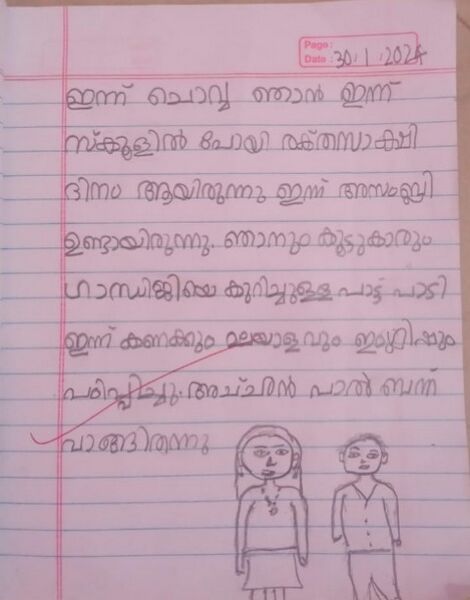 Page:
Date: 30.1.2024
ഇന്ന് ചൊവ്വ ഞാൻ ഇന്ന്
സ്കൂളിൽ പോയി രക്തസാക്ഷി
ദിനം ആയിരുന്നു ഇന്ന് അസംബ്ലി
ഉണ്ടായിരുന്നു. ഞാനും കൂട്ടുകാരും
ഗാന്ധിജിയെ കുറിച്ചുള്ള പാട്ട് പാടി
ഇന്ന് കണക്കും മലയാളവും ഇംഗ്ലിഷും
പഠിപ്പിച്ചു. അച്ചൻ പാൽ ബന്ന്
വാങ്ങിതന്നു